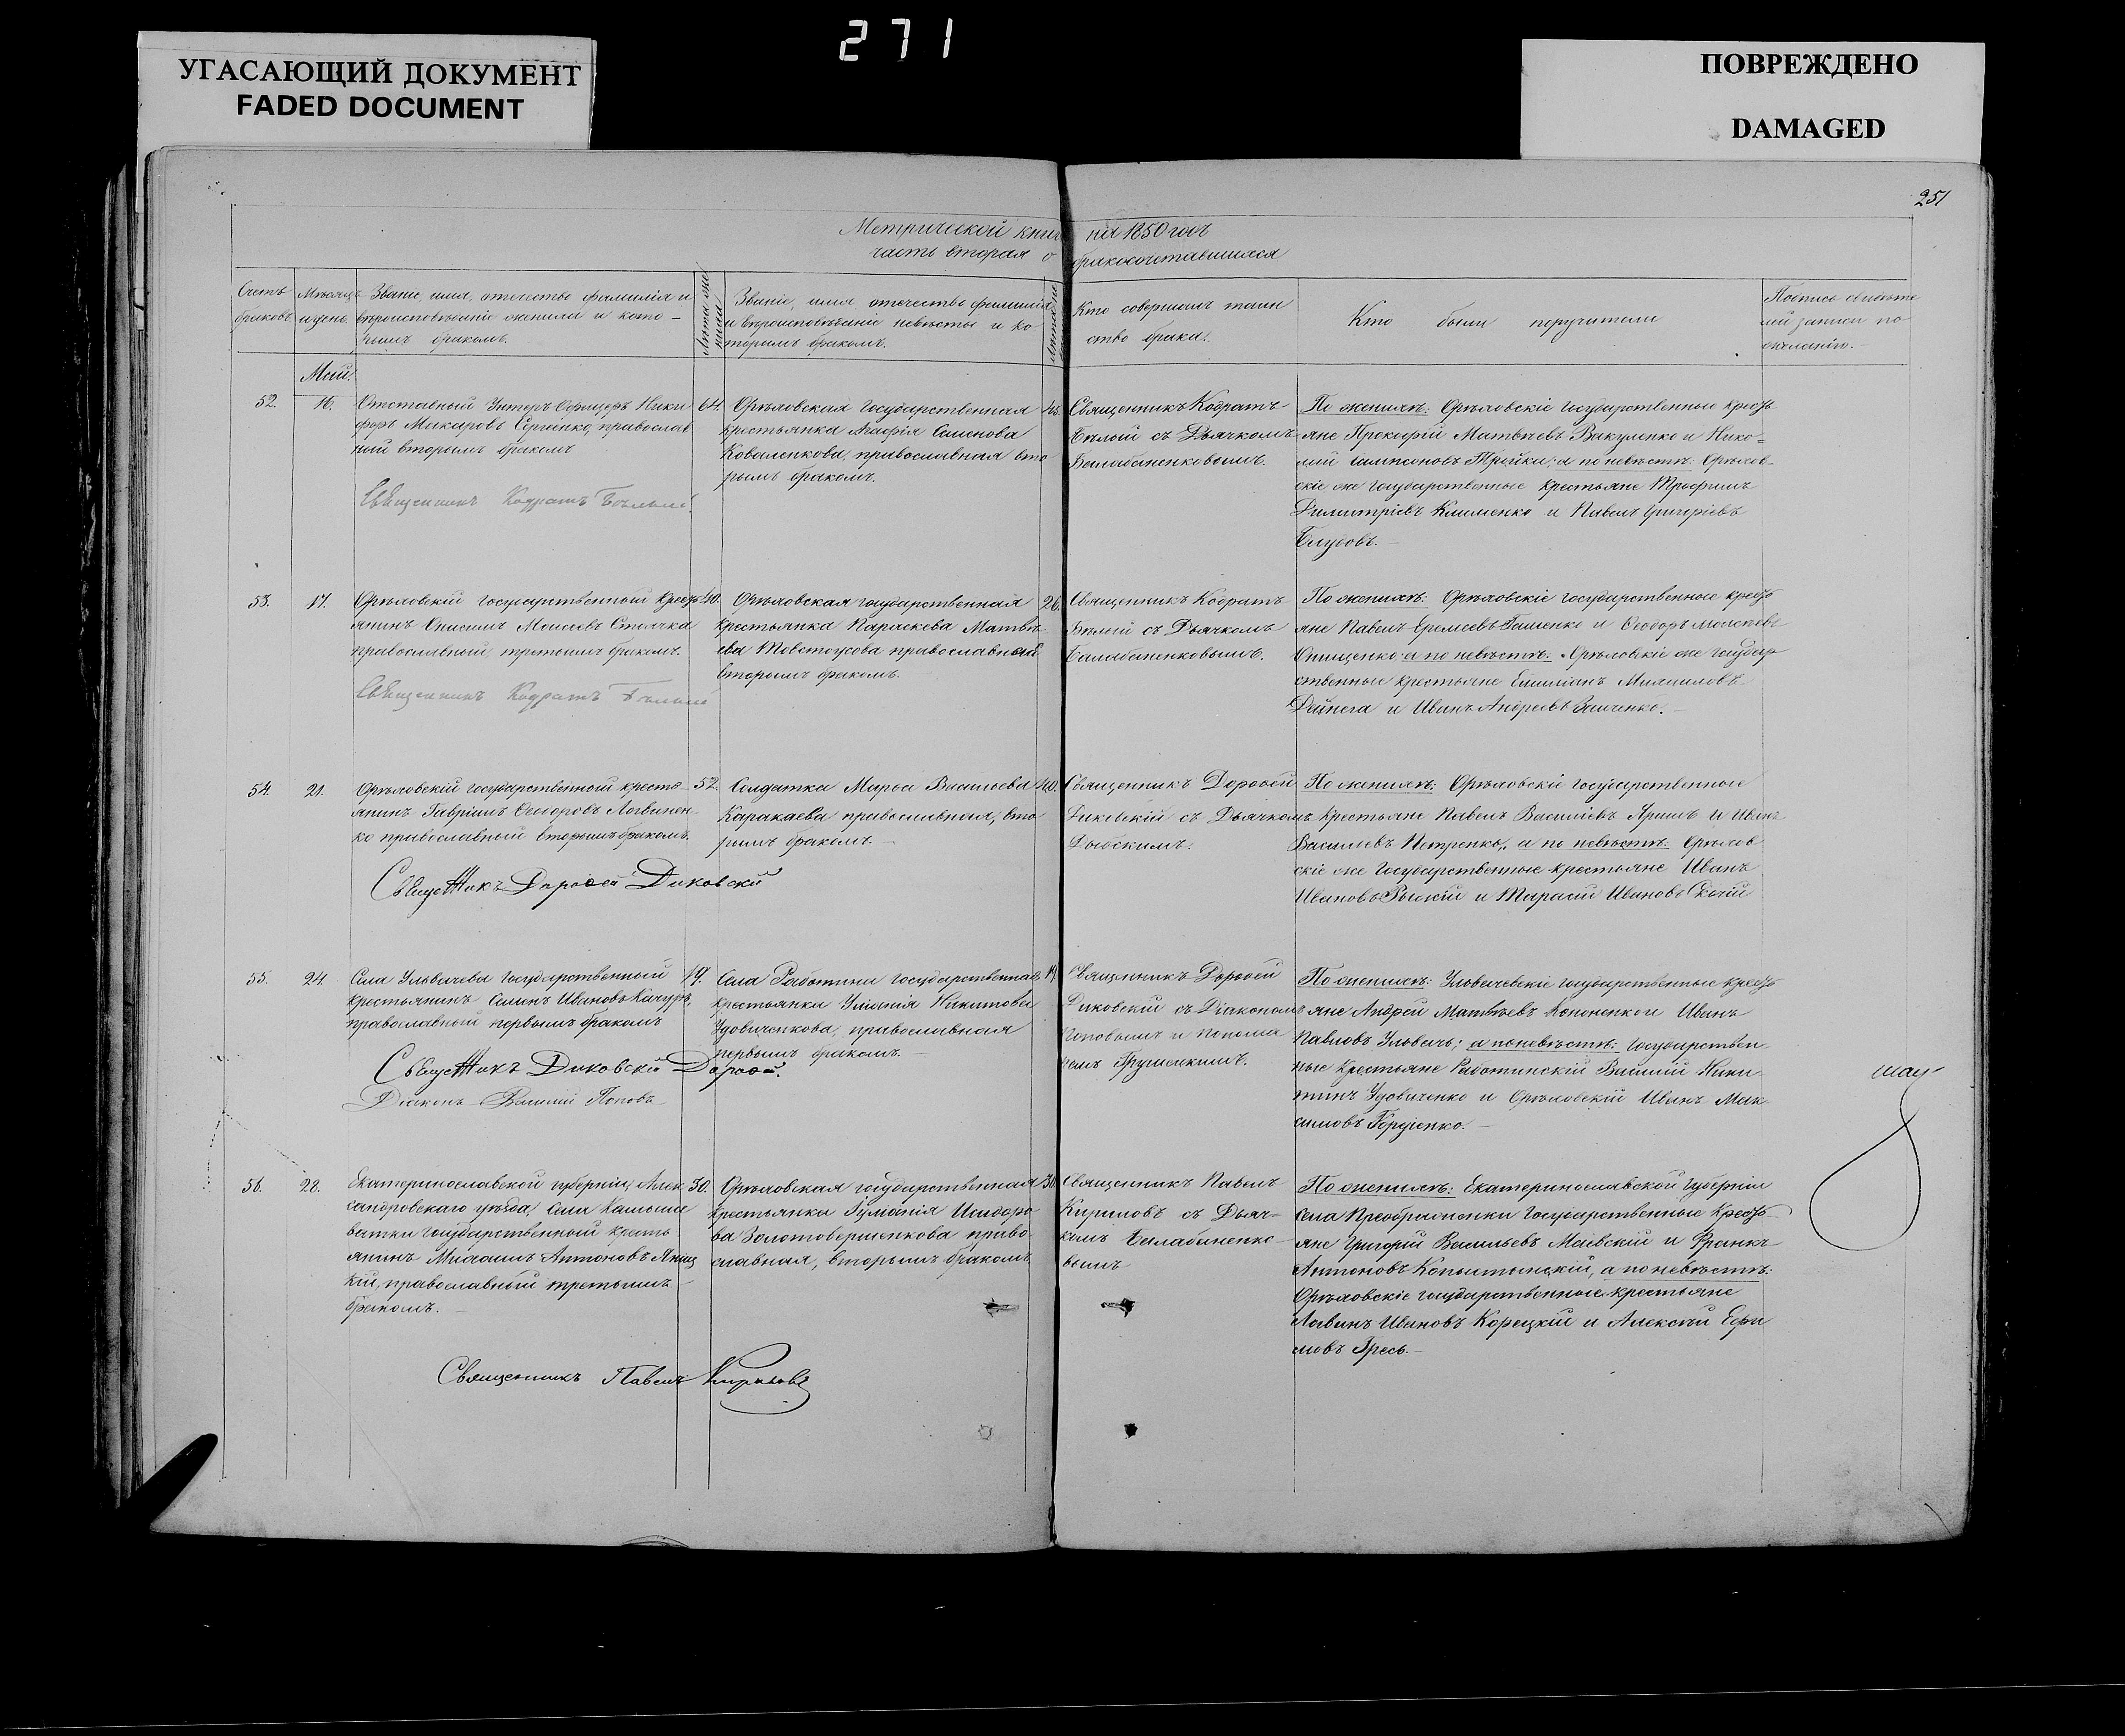 271
УГАСАЮЩИЙ ДОКУМЕНТ
FADED DOCUMENT
ПОВРЕЖДЕНО
DAMAGED
251
Метрической книги на 1850 годъ
часть вторая о бракосочетавшихся
Счетъ браковъ
Мѣсяцъ и день.
Званіе, имя, отечество фамилія и
вѣроисповѣданіе жениха и кото-
рымъ бракомъ.
Лѣта жениха
Званіе, имя отечество фамилія
и вѣроисповѣданіе невѣсты и ко
торымъ бракомъ.
Кто совершалъ таин
ство брака.
Кто были поручители
Подпись свидѣте
лей записи по
желанію.
Май.
52.
16.
Отставный Унтеръ Офицеръ Ники
форъ Макаровъ Сергіенко, православ
ный вторымъ бракомъ
Священникъ Кодратъ Бѣлый.
64.
Орѣховская государственная
крестьянка Агафія Семенова
Коваленкова, православная вто
рымъ бракомъ.
45.
Священникъ Кодратъ
Бѣлый съ Дьячкомъ
Балабаненковымъ.
По женихѣ: Орѣховскіе государственные кресть
яне Прокофій Матвѣевъ Вакуленко и Нико=
лай Сампсоновъ Тройка; а по невѣстѣ: Орѣхов-
скіе же государственные крестьяне Трофимъ
Димитріевъ Клименко и Павелъ Григоріевъ
53.
17.
Орѣховскій государственный кресть
янинъ Онисимъ Моисеевъ Стоячка
православный, третьимъ бракомъ.
Священникъ Кодратъ Бѣлый
40.
Орѣховская государственная
крестьянка Параскева Матвѣ-
ева Товстоусова православная
вторымъ бракомъ.
26.
Священникъ Кодратъ
Бѣлый съ Дьячкомъ
Балабаненковымъ.
По женихѣ: Орѣховскіе государственные кресть
яне Павелъ Еремеевъ и Ѳеодоръ
Онищенко; а по невѣстѣ: Орѣховскіе же государ
ственные крестьяне Емиліанъ Михаиловъ
Дейнега и Иванъ Андреевъ Заиченко.
54.
21.
Орѣховскій государственный кресть
янинъ Гавріилъ Ѳеодоровъ Логвинен
ко православный вторымъ бракомъ.
Священникъ Дороѳей Диковскій
52.
Солдатка Марѳа Васильева
Каракаева православная, вто
рымъ бракомъ.
40.
Священникъ Дороѳей
Диковскій съ Дьячкомъ
По женихѣ: Орѣховскіе государственные
крестьяне Павелъ Василіевъ и Иванъ
Василіевъ Петренко, а по невѣстѣ: Орѣхов
скіе же государственные крестьяне Иванъ
Ивановъ и Тарасій Ивановъ
55.
24.
Села Ульвачева государственный
крестьянинъ Семенъ Ивановъ Качуръ,
православный первымъ бракомъ
Священникъ Диковскій Дороѳей.
Діаконъ Василій Поповъ
19.
Села Работина государственная
крестьянка Уліанія Никитова
Удовиченкова, православная
первымъ бракомъ.
Священникъ Дороѳей
Диковскій съ Діакономъ
Поповымъ и понома
ремъ Грушецкимъ.
По женихѣ: Ульвачевскіе государственные кресть
яне Андрей Матвѣевъ Кононенко и Иванъ
Павловъ Ульвачъ; а по невѣстѣ: государствен
ные крестьяне Работинскій Василій Ники
тинъ Удовиченко и Орѣховскій Иванъ Мак
симовъ Гордіенко.
56.
28.
Екатеринославской губерніи, Алек
сандровскаго уѣзда, села Камыше
ватки государственный кресть
янинъ Михаилъ Антоновъ Яниц
кій, православный третьимъ
бракомъ.
Священникъ Павелъ Кириловъ
30.
Орѣховская государственная
крестьянка Іуліанія Исидоро
ва Золотовершенкова право
славная, вторымъ бракомъ
Священникъ Павелъ
Кириловъ съ Дьяч-
комъ Балабаненко-
вымъ
По женихѣ: Екатеринославской губерніи
села Преображенки государственные кресть
яне Григорій Васильевъ Маевскій и Франкъ
Антоновъ Копыстынскій, а по невѣстѣ:
Орѣховскіе государственные крестьяне
Логвинъ Ивановъ Корецкій и Алексѣй Ефи
мовъ Гресь.